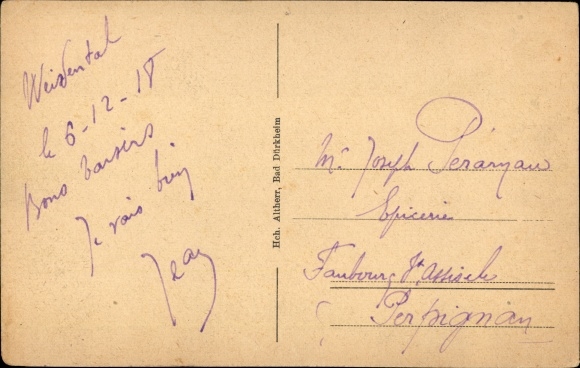 Weidental
le 6-12-18
Bons baisers
Je vais bien
Jean
Hch. Altherr, Bad Dürkheim
Mr Joseph
Epicerie
Faubourg St, Assiscle
Perpignan